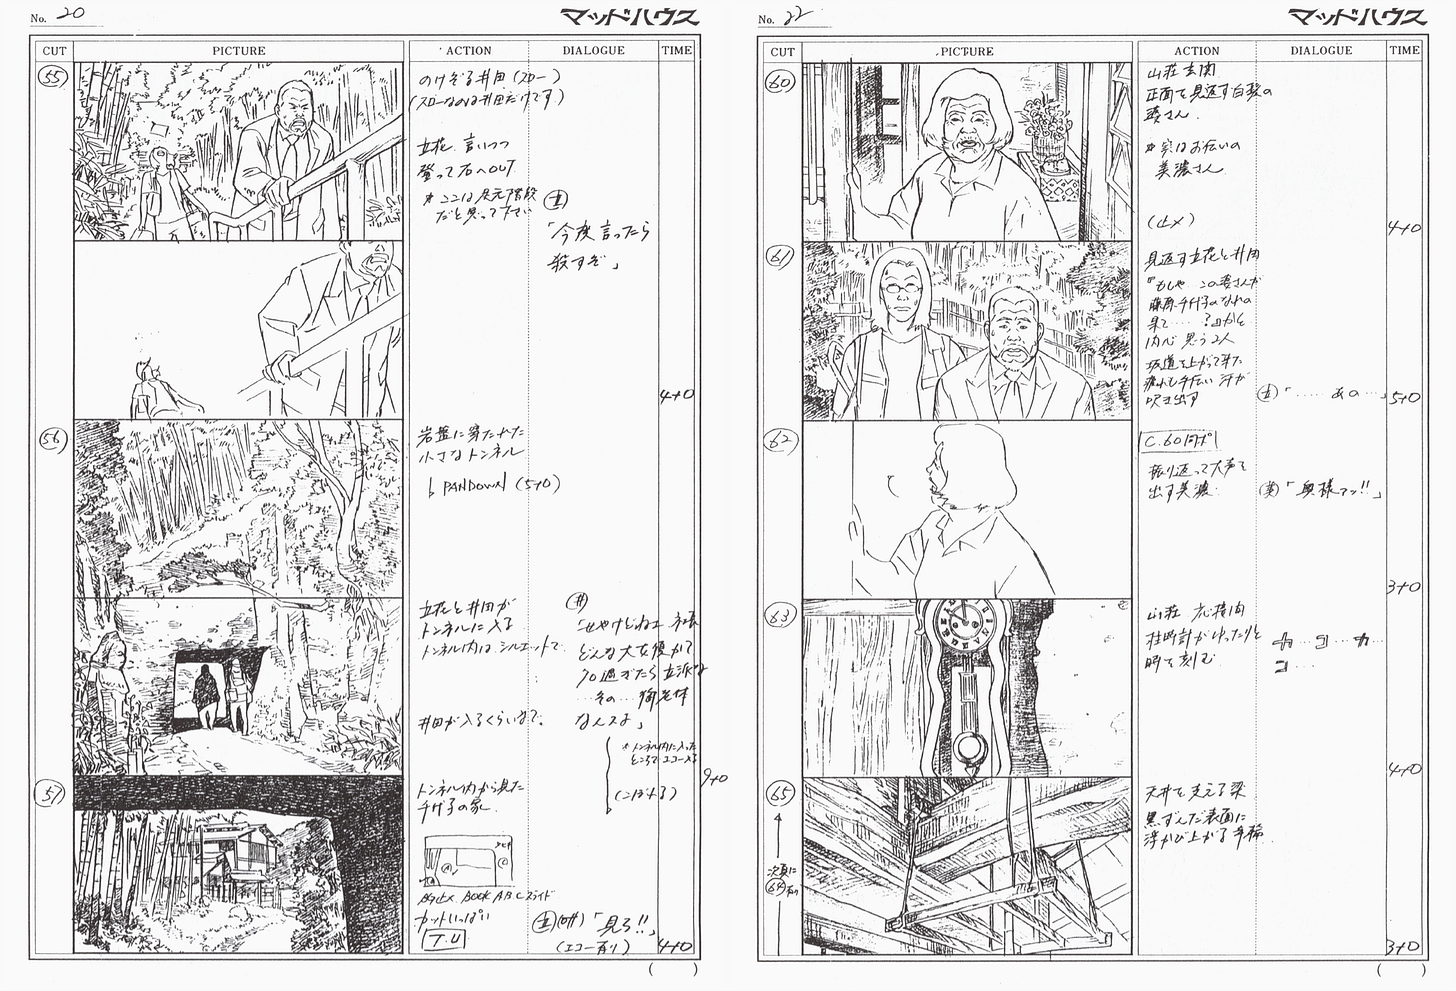 No. 20
マッドハウス
CUT PICTURE ACTION DIALOGUE TIME
55
のけぞる井田(スロー)
(スローなのは井田だけです)
立花 言いつつ
登って右へOUT
*ここは足元階段
だと思って下さい
立
「今度言ったら
殺すぞ」
4+0
56
岩盤に穿たれた
小さなトンネル
↓PANDOWN (5+0)
立花と井田が
トンネルに入る
トンネル内はシルエットで
井田が入るくらいまで。
井
どんな大
70過ぎたら立派な
…その…御老体
なんスよ」
*トンネル内に入った
ところでエコー入る
(こぼれる)
9+0
57
トンネル内から見た
千代子の家
BOOK A.B.C スライド
カットいっぱい
T.U
立(off)「見ろ!!」
(エコー有り)
4+0
( )
No. 22
マッドハウス
CUT PICTURE ACTION DIALOGUE TIME
60
山荘玄関
正面を見返す白髪の
婆さん
*実はお伝いの
美濃さん
(止メ)
4+0
61
見返す立花と井田
『もしや この婆さんが
藤原千代子のなれの
果て……?』かと
内心思う2人
坂道を上がって来た
疲れも手伝い汗が
吹き出す
立「……あの…」
5+0
62
C.60同ポ
振り返って大声を
出す美濃
美「奥様ァッ!!」
3+0
63
山荘 応接間
柱時計がゆったりと
時を刻む
カ…コ…カ…
コ…
4+0
65
次頁に
64有り
天井を支える梁
黒ずんだ表面に
浮かび上がる年輪
3+0
( )